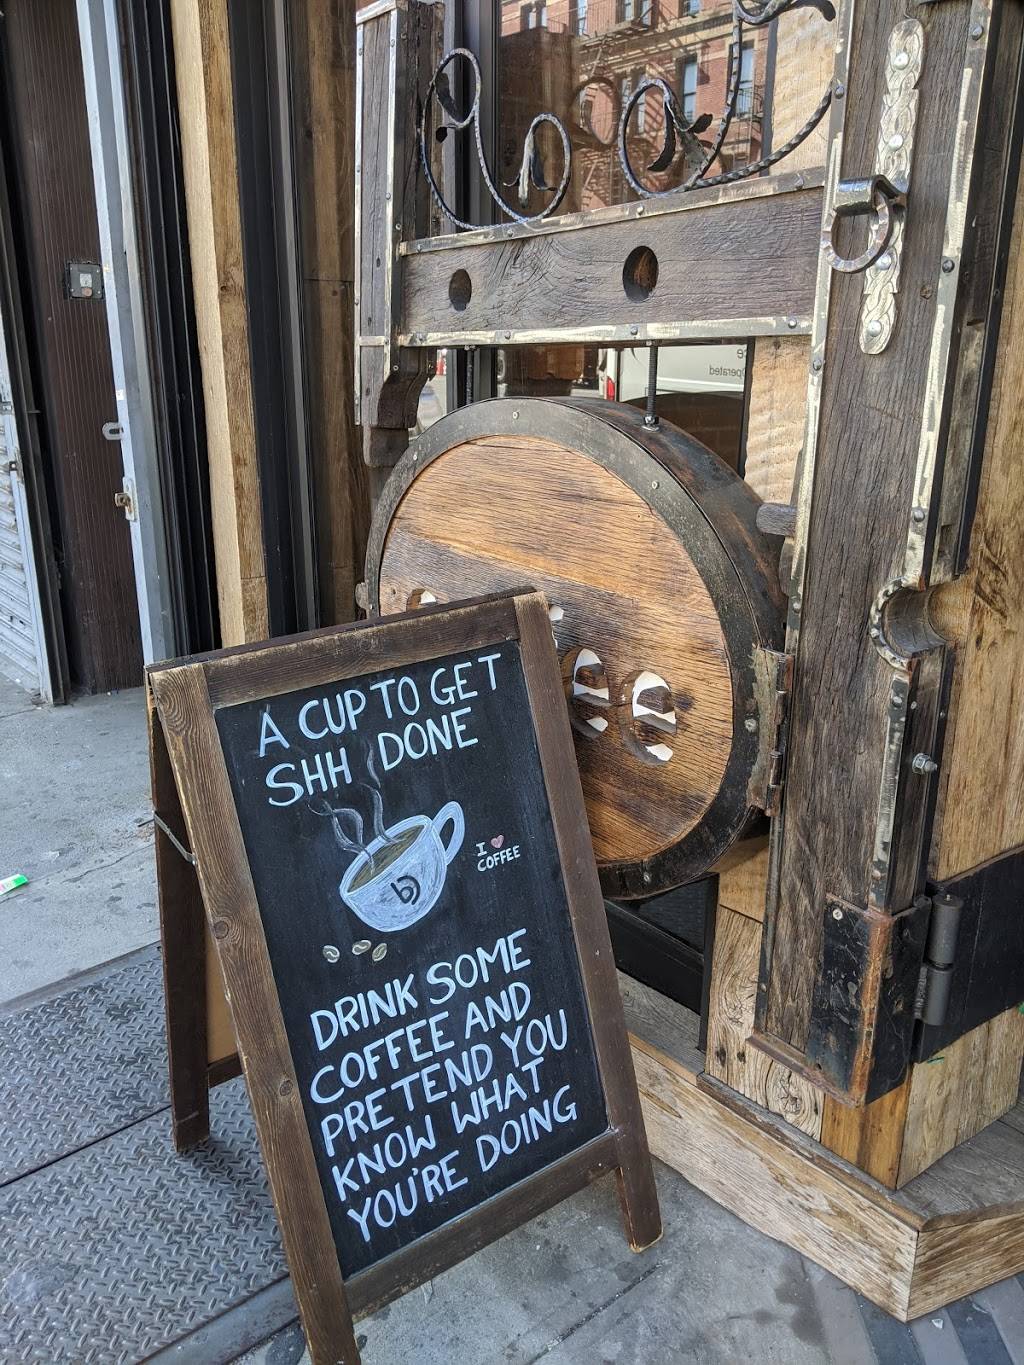 A CUP TO GET
SHH DONE
I ♥
COFFEE
b
DRINK SOME
COFFEE AND
PRETEND YOU
KNOW WHAT
YOU'RE DOING
ee